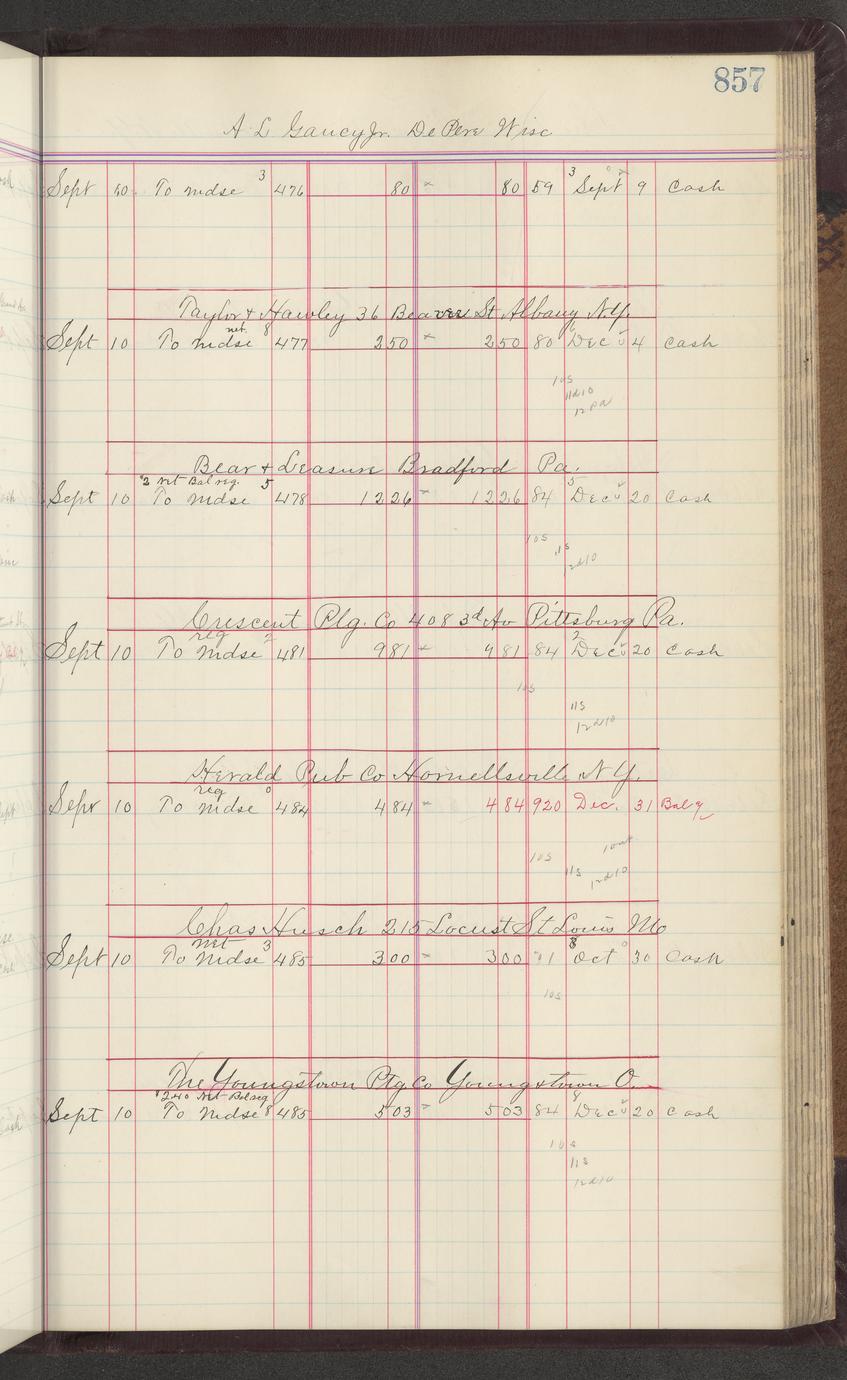 857
A L Gaucy Jr. De Pere Wisc
3 3
Sept 10 To mdse 476 80 80 59 Sept 9 Cash
Taylor & Hawley 36 Beaver St Albany N.Y.
net. 8
Sept 10 To mdse 477 250 250 80 Dec 4 Cash
10s
11d10
12 pa
Bear & Leasure Bradford Pa.
2 net Bal reg. 5 5
Sept 10 To mdse 478 1226 1226 84 Dec 20 Cash
10s
11s
12d10
Crescent Plg. Co 408 3d Av Pittsburg Pa.
reg 2 2
Sept 10 To mdse 481 981 981 84 Dec 20 Cash
10s
11s
12d10
Herald Pub Co Hornellsville N.Y.
reg 0
Sept 10 To mdse 484 484 484 920 Dec. 31 Bal
10s
11s 12d10
Chas Husch 215 Locust St Louis Mo
net 3 3
Sept 10 To mdse 485 300 300 Oct 30 Cash
10s
The Youngstown Ptg Co Youngstown O.
240 Net Bal reg
Sept 10 To mdse 8 485 503 503 84 Dec 20 Cash
10s
11s
12d10